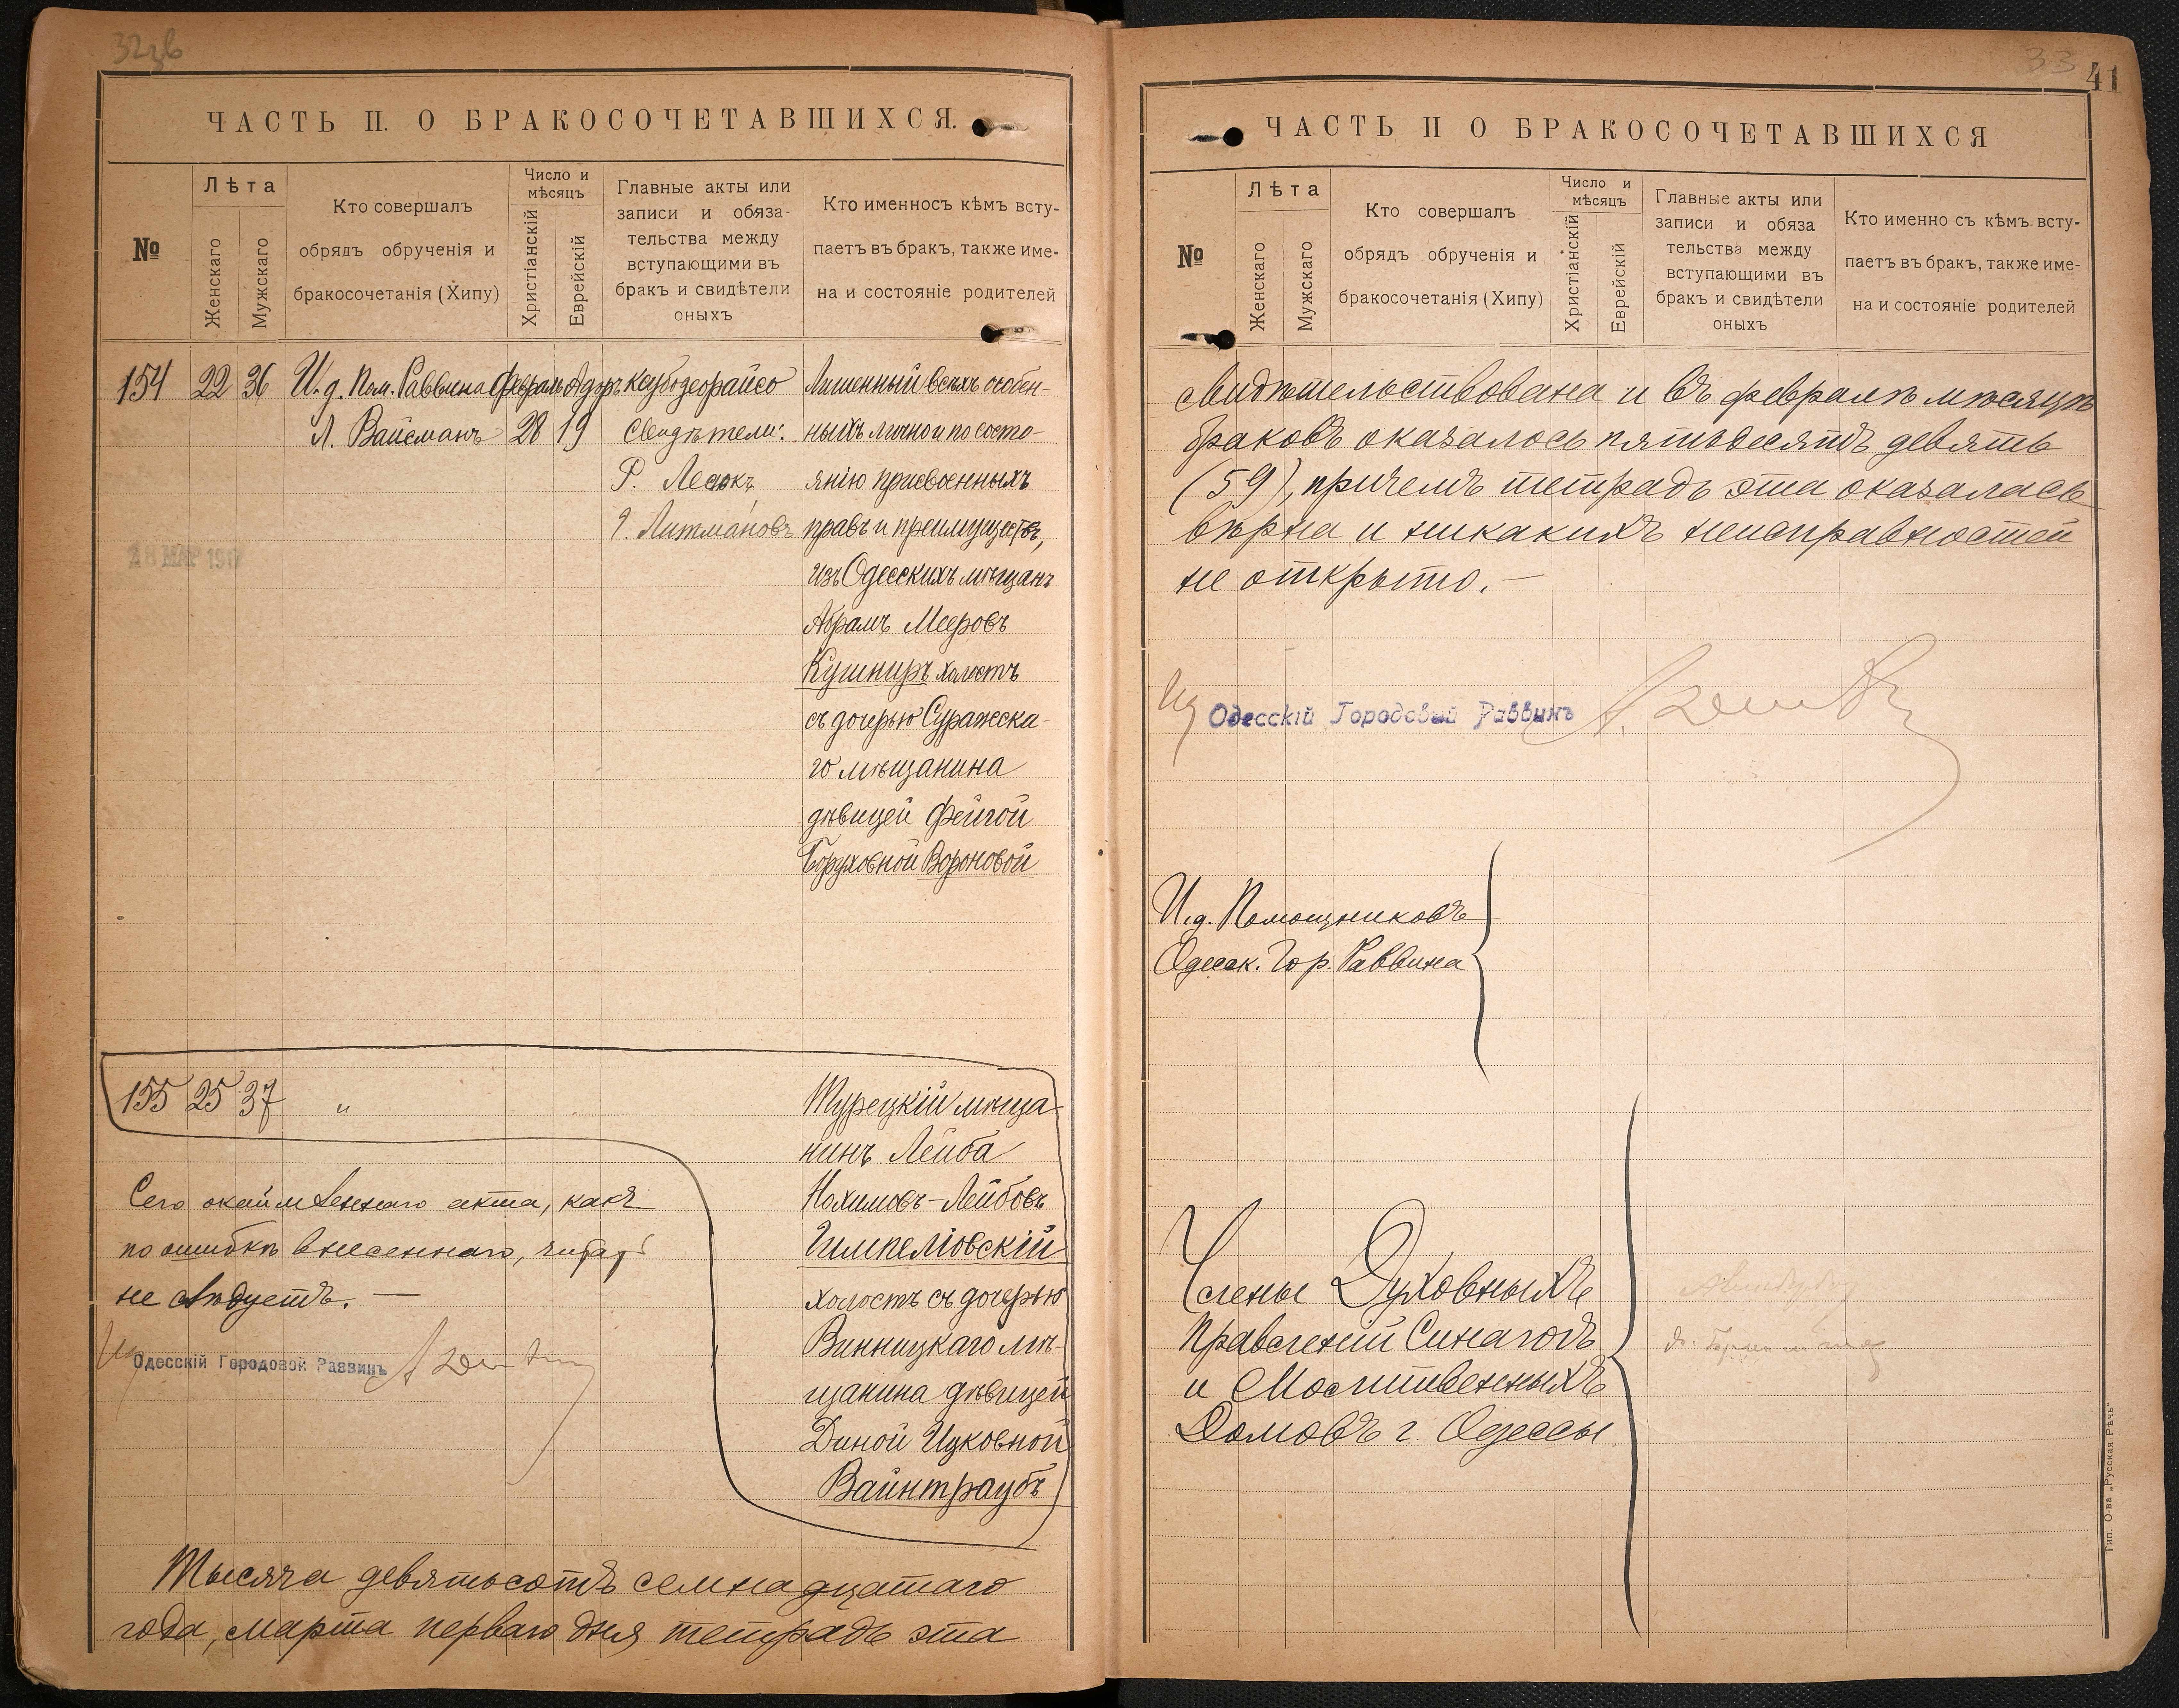 32
ЧАСТЬ II. О БРАКОСОЧЕТАВШИХСЯ.
№
Лѣта
Женскаго
Мужскаго
Кто совершалъ
обрядъ обрученія и
бракосочетанія (Хипу)
Число и
мѣсяцъ
Христіанскій
Еврейскій
Главные акты или
записи и обяза-
тельства между
вступающими въ
бракъ и свидѣтели
оныхъ
Кто именносъ кѣмъ всту-
паетъ въ бракъ, также име-
на и состояніе родителей
154 22 36
И. д. Пом. Раввина
Л. Вайсманъ
Февраль
28
Адоръ
19
Каубодеорайсо
Свидѣтели:
Р.
Литмановъ
Лишенный всѣхъ особен-
ныхъ лично и по состо-
янію присвоенныхъ
правъ и преимуществъ,
изъ Одесскихъ мѣщанъ
Абрамъ Мееровъ
Кушниръ холостъ
съ дочерью Суражска-
го мѣщанина
дѣвицей Фейгой
Боруховной Вороновой
28 МАР 1917
155 25 37 "
Турецкій мѣща-
нинъ Лейба
Нохимовъ-Лейбовъ
Гимпеліовскій
холостъ съ дочерью
Винницкаго мѣ-
щанина дѣвицей
Диной Ицковной
Вайнтраубъ
Сего окаймленнаго акта, какъ
по ошибкѣ внесеннаго, читать
не слѣдуетъ. —
Одесскій Городовой Раввинъ
Тысяча девятьсотъ семнадцатаго
года, марта перваго дня тетрадь эта
33
41
ЧАСТЬ II О БРАКОСОЧЕТАВШИХСЯ
№
Лѣта
Женскаго
Мужскаго
Кто совершалъ
обрядъ обрученія и
бракосочетанія (Хипу)
Число и
мѣсяцъ
Христіанскій
Еврейскій
Главные акты или
записи и обяза
тельства между
вступающими въ
бракъ и свидѣтели
оныхъ
Кто именно съ кѣмъ всту-
паетъ въ бракъ, также име-
на и состояніе родителей
свидѣтельствована и въ февралѣ мѣсяцѣ
браковъ оказалось пятьдесятъ девять
(59), причемъ тетрадь эта оказалась
вѣрна и никакихъ неисправностей
не открыто. —
Одесскій Городовый Раввинъ
И. д. Помощниковъ
Одесск. Гор. Раввина
Члены Духовныхъ
Правленій Синагогъ
и Молитвенныхъ
Домовъ г. Одессы
Тип. О-ва „Русская Рѣчь"